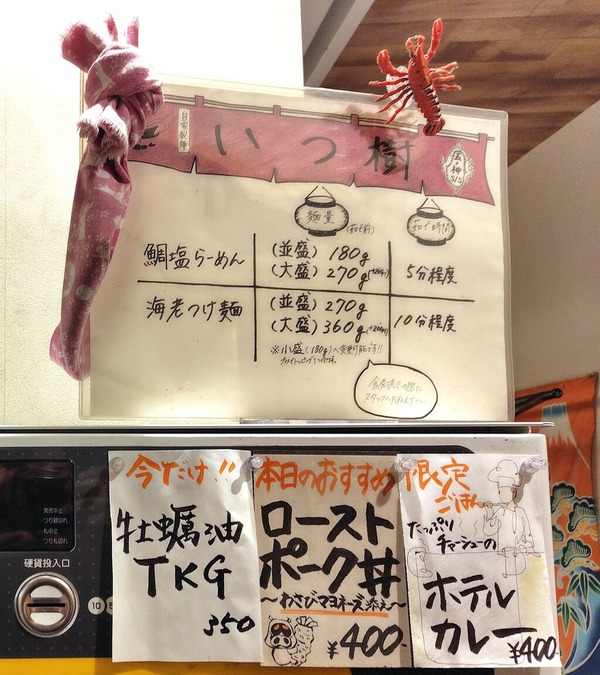 自家製麺
いつ樹
五ノ神
麺量
(茹で前)
茹で時間
鯛塩らーめん
(並盛) 180g
(大盛) 270g
5分程度
海老つけ麺
(並盛) 270g
(大盛) 360g
10分程度
※小盛(180g)へ変更可能です!!
食券提示の際に
スタッフへお伝え下さい
今だけ!!
牡蠣油
TKG
350
本日のおすすめ
ロースト
ポーク丼
〜わさびマヨネーズ添え〜
¥400-
限定
ごはん
たっぷり
チャーシューの
ホテル
カレー
¥400-
発売中止
つり銭切れ
札中止
つり札切れ
硬貨投入口
10